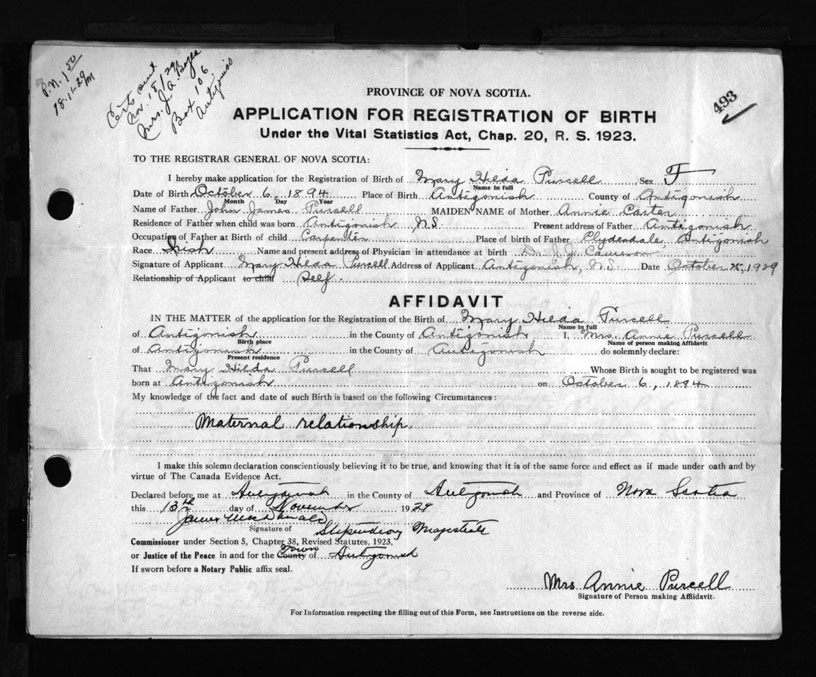 P.N. 1.50
18-11-29 M
Cert sent
Nov. 18/29
Mrs. J. A.
Box 106
Antigonish
493
PROVINCE OF NOVA SCOTIA.
APPLICATION FOR REGISTRATION OF BIRTH
Under the Vital Statistics Act, Chap. 20, R. S. 1923.
TO THE REGISTRAR GENERAL OF NOVA SCOTIA:
I hereby make application for the Registration of Birth of Mary Hilda Purcell Sex F
Name in full
Date of Birth October 6, 1894 Place of Birth Antigonish County of Antigonish
Month Day Year
Name of Father John James Purcell MAIDEN NAME of Mother Annie Carter
Residence of Father when child was born Antigonish N.S. Present address of Father Antigonish
Occupation of Father at Birth of child Carpenter Place of birth of Father Clydesdale, Antigonish
Race Irish Name and present address of Physician in attendance at birth Dr. J. J. Cameron
Signature of Applicant Mary Hilda Purcell Address of Applicant Antigonish, N.S. Date October 1929
Relationship of Applicant to child Self.
AFFIDAVIT
IN THE MATTER of the application for the Registration of the Birth of Mary Hilda Purcell
Name in full
of Antigonish in the County of Antigonish I, Mrs. Annie Purcell
Birth place Name of person making Affidavit
of Antigonish in the County of Antigonish do solemnly declare:
Present residence
That Mary Hilda Purcell Whose Birth is sought to be registered was
born at Antigonish on October 6, 1894
My knowledge of the fact and date of such Birth is based on the following Circumstances:
Maternal relationship.
I make this solemn declaration conscientiously believing it to be true, and knowing that it is of the same force and effect as if made under oath and by
virtue of The Canada Evidence Act.
Declared before me at Antigonish in the County of Antigonish and Province of Nova Scotia
this 13th day of November 1929
James MacDonald
Signature of Stipendiary Magistrate
Commissioner under Section 5, Chapter 38, Revised Statutes, 1923,
or Justice of the Peace in and for the County Town of Antigonish
If sworn before a Notary Public affix seal.
Mrs Annie Purcell
Signature of Person making Affidavit.
For Information respecting the filling out of this Form, see Instructions on the reverse side.